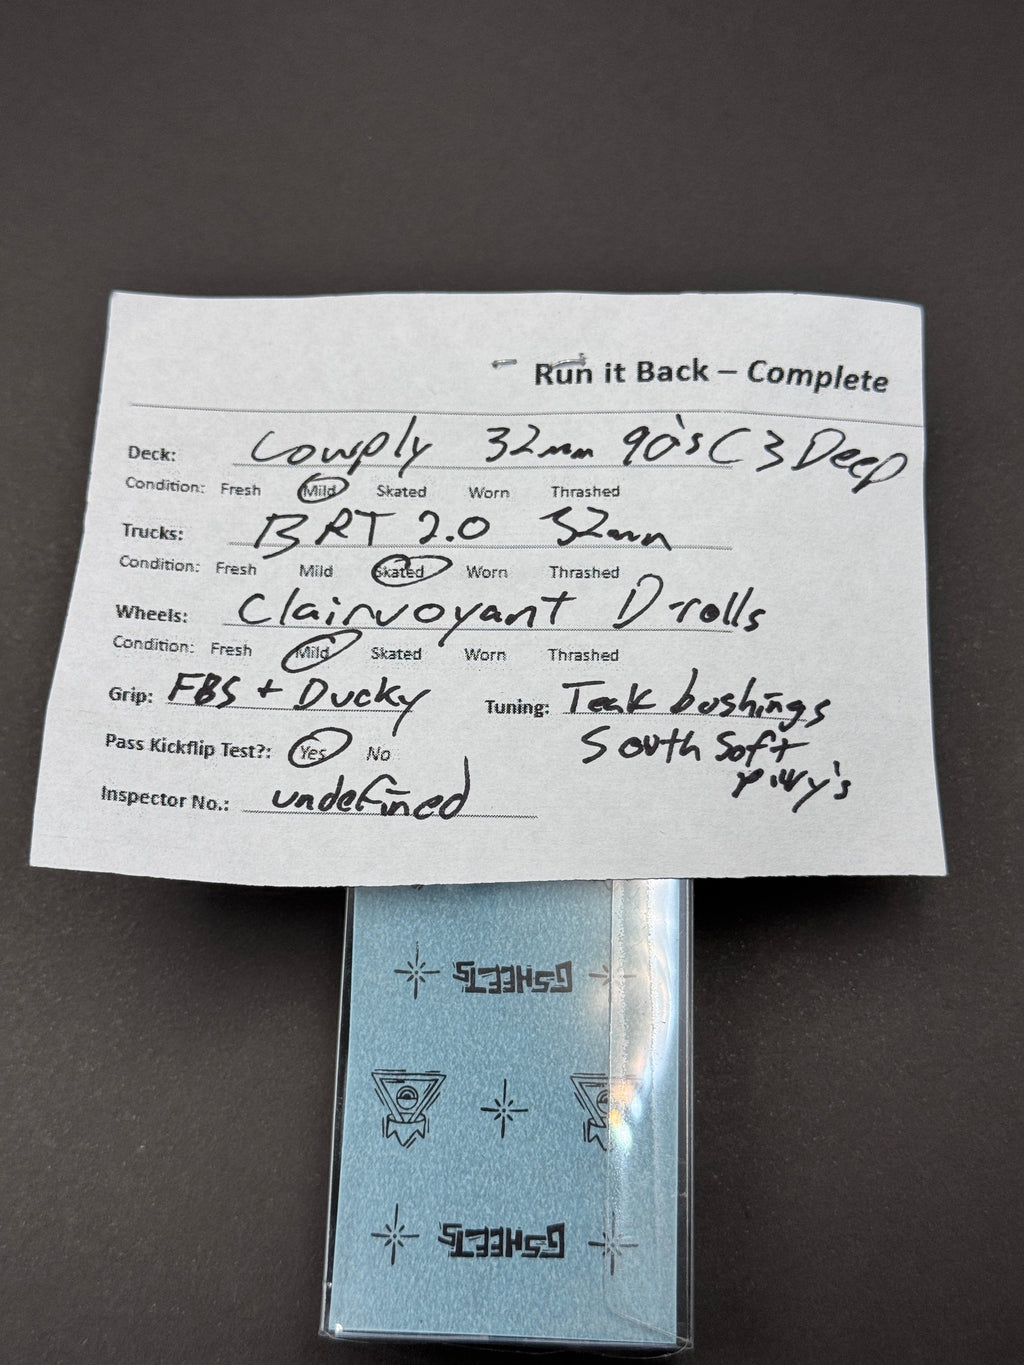 Run it Back – Complete
Deck: Lowply 32mm 90's C3 Deep
Condition: Fresh Mild Skated Worn Thrashed
Trucks: BRT 2.0 32mm
Condition: Fresh Mild Skated Worn Thrashed
Wheels: Clairvoyant D-rolls
Condition: Fresh Mild Skated Worn Thrashed
Grip: FBS + Ducky Tuning: Teak bushings
South Soft
Pass Kickflip Test?: Yes No
Inspector No.: undefined
GSHEETS
GSHEETS